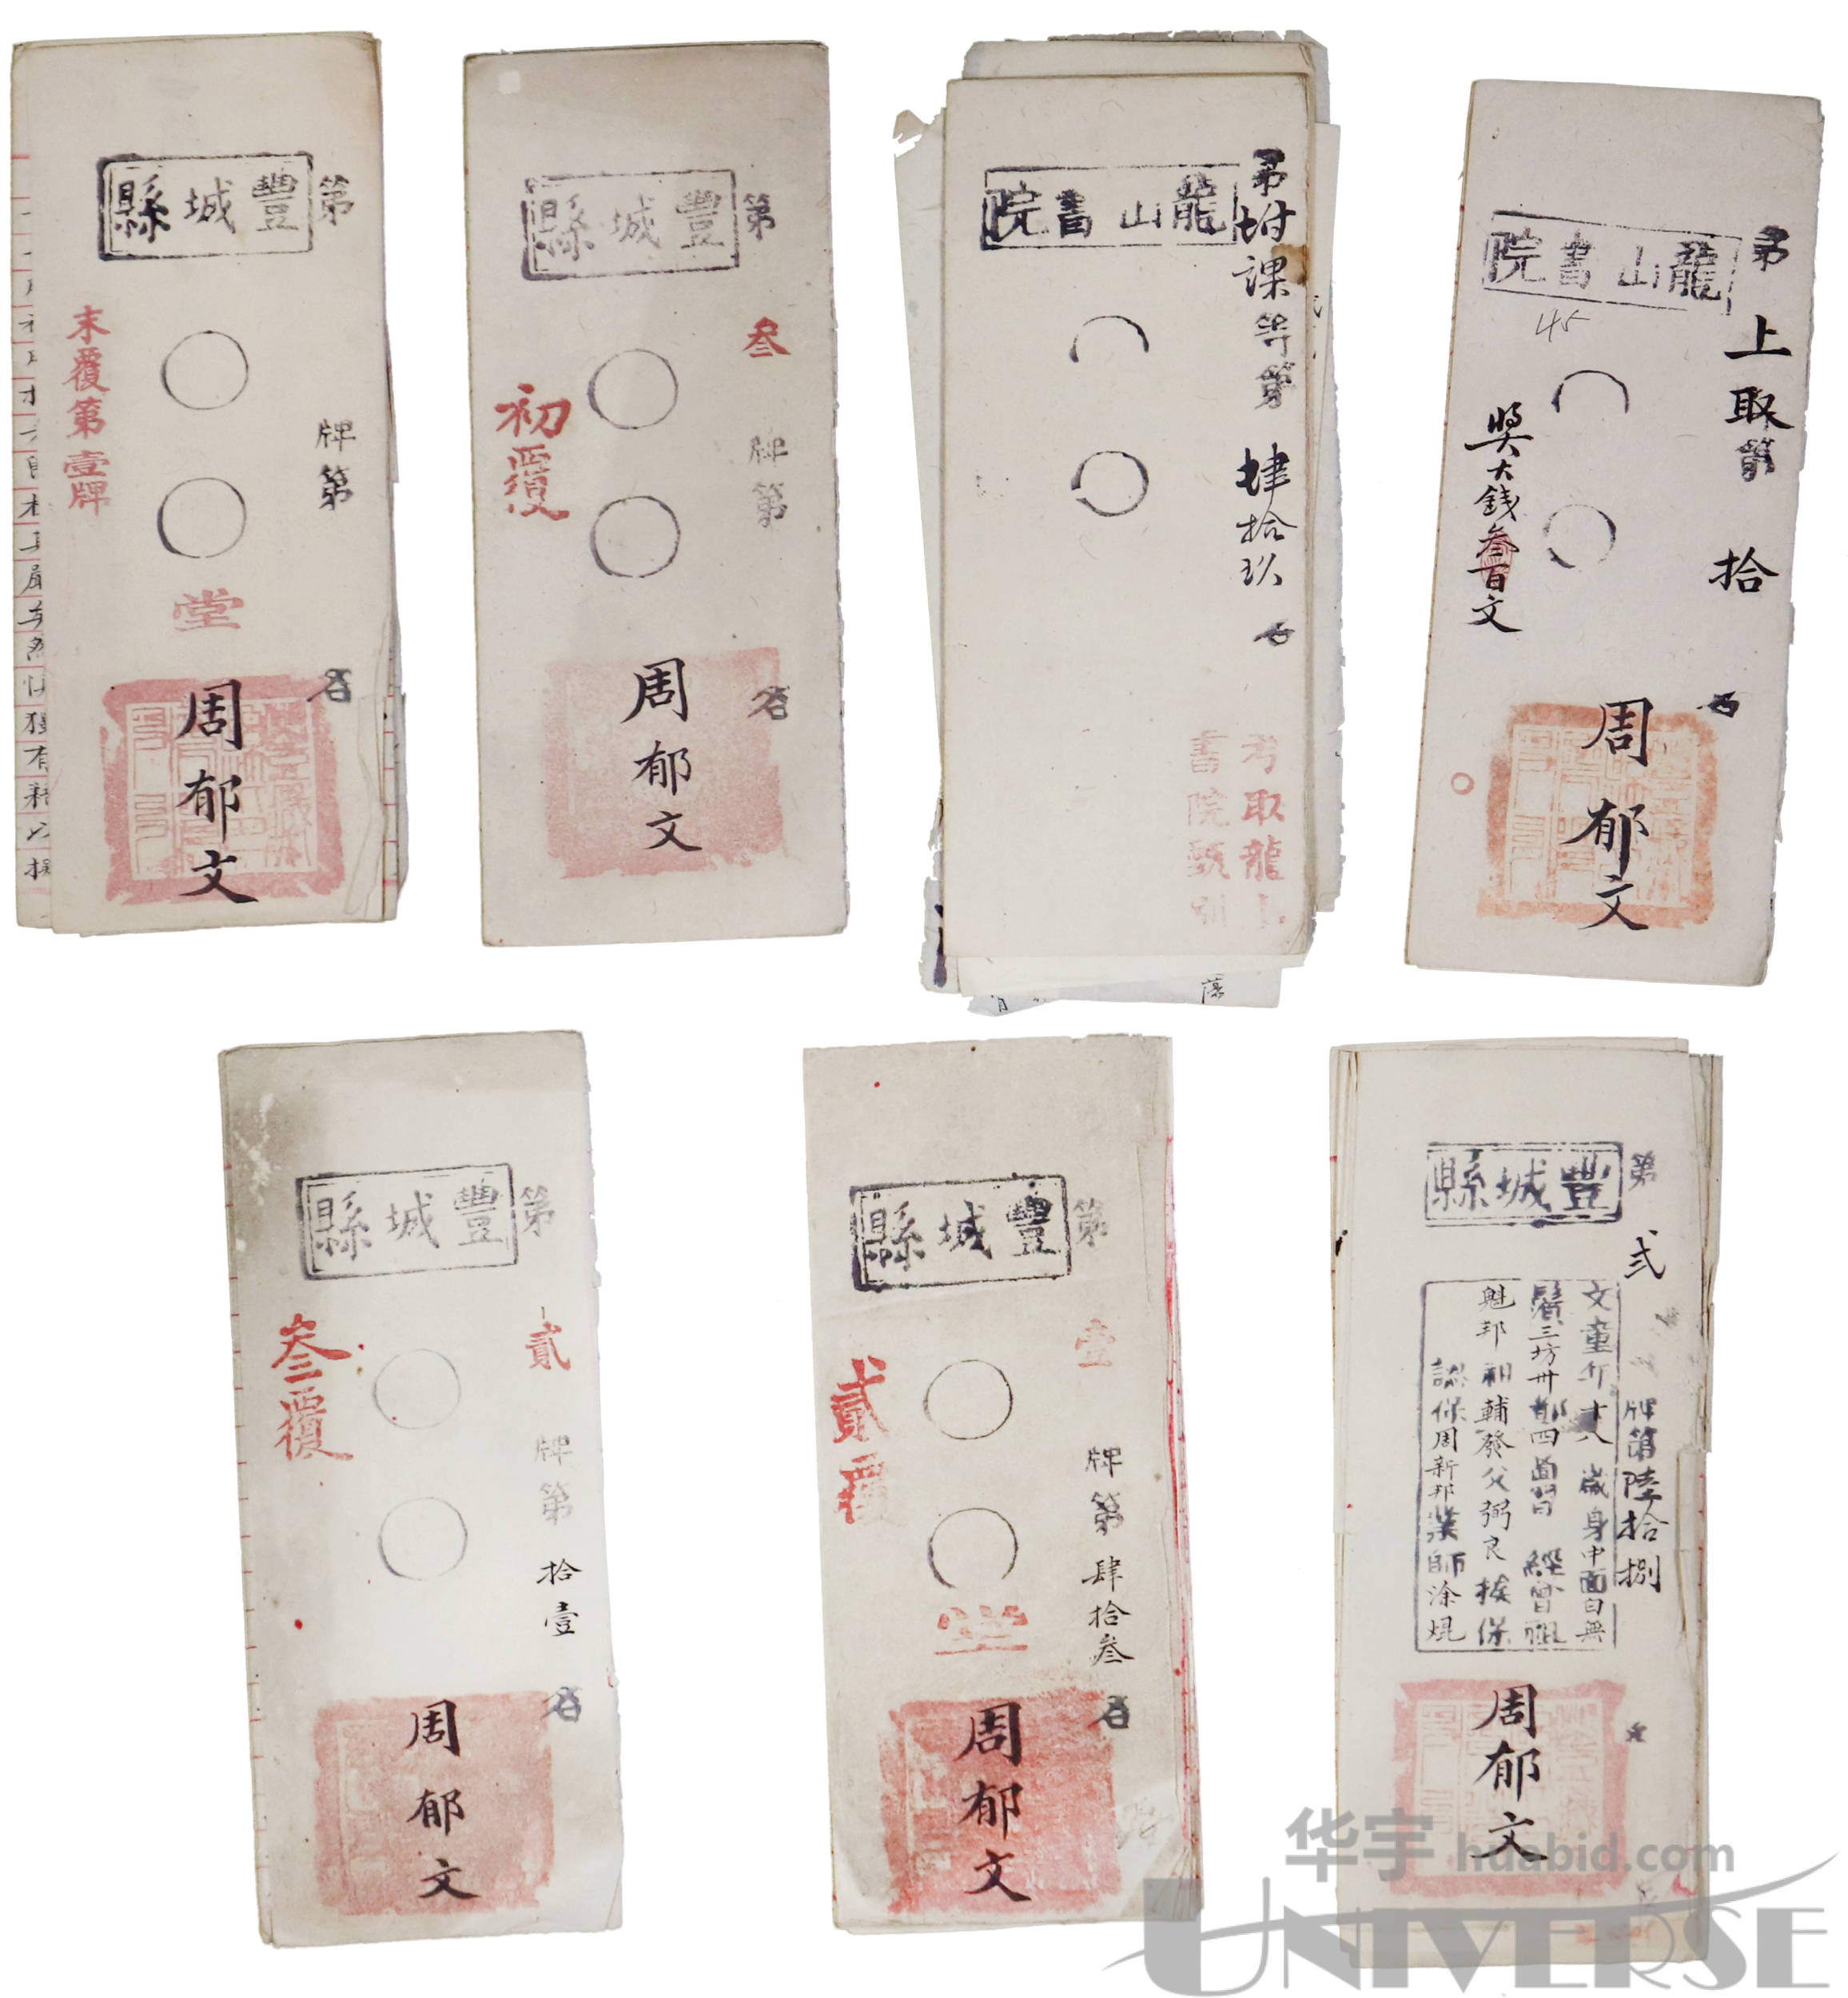 豐城縣
第
牌第
名
末覆第壹牌
堂
周郁文
豐城縣
第
叁
牌第
名
初覆
周郁文
龍山書院
第附課等第
肆拾玖
名
考取龍山
書院甄別
龍山書院
第
上取第
拾
名
45
獎大錢叁百文
周郁文
豐城縣
第
貳
牌第
拾壹
名
叁覆
周郁文
豐城縣
第
壹
牌第
肆拾叁
名
貳覆
堂
周郁文
豐城縣
第
弍
牌第陸拾捌
名
文童年十八歲身中面白無
鬚三坊卅都四圖習 經曾祖
魁邦祖輔發父弼良挨保
認保周新邦業師涂焜
周郁文
华宇 huabid.com
UNIVERSE